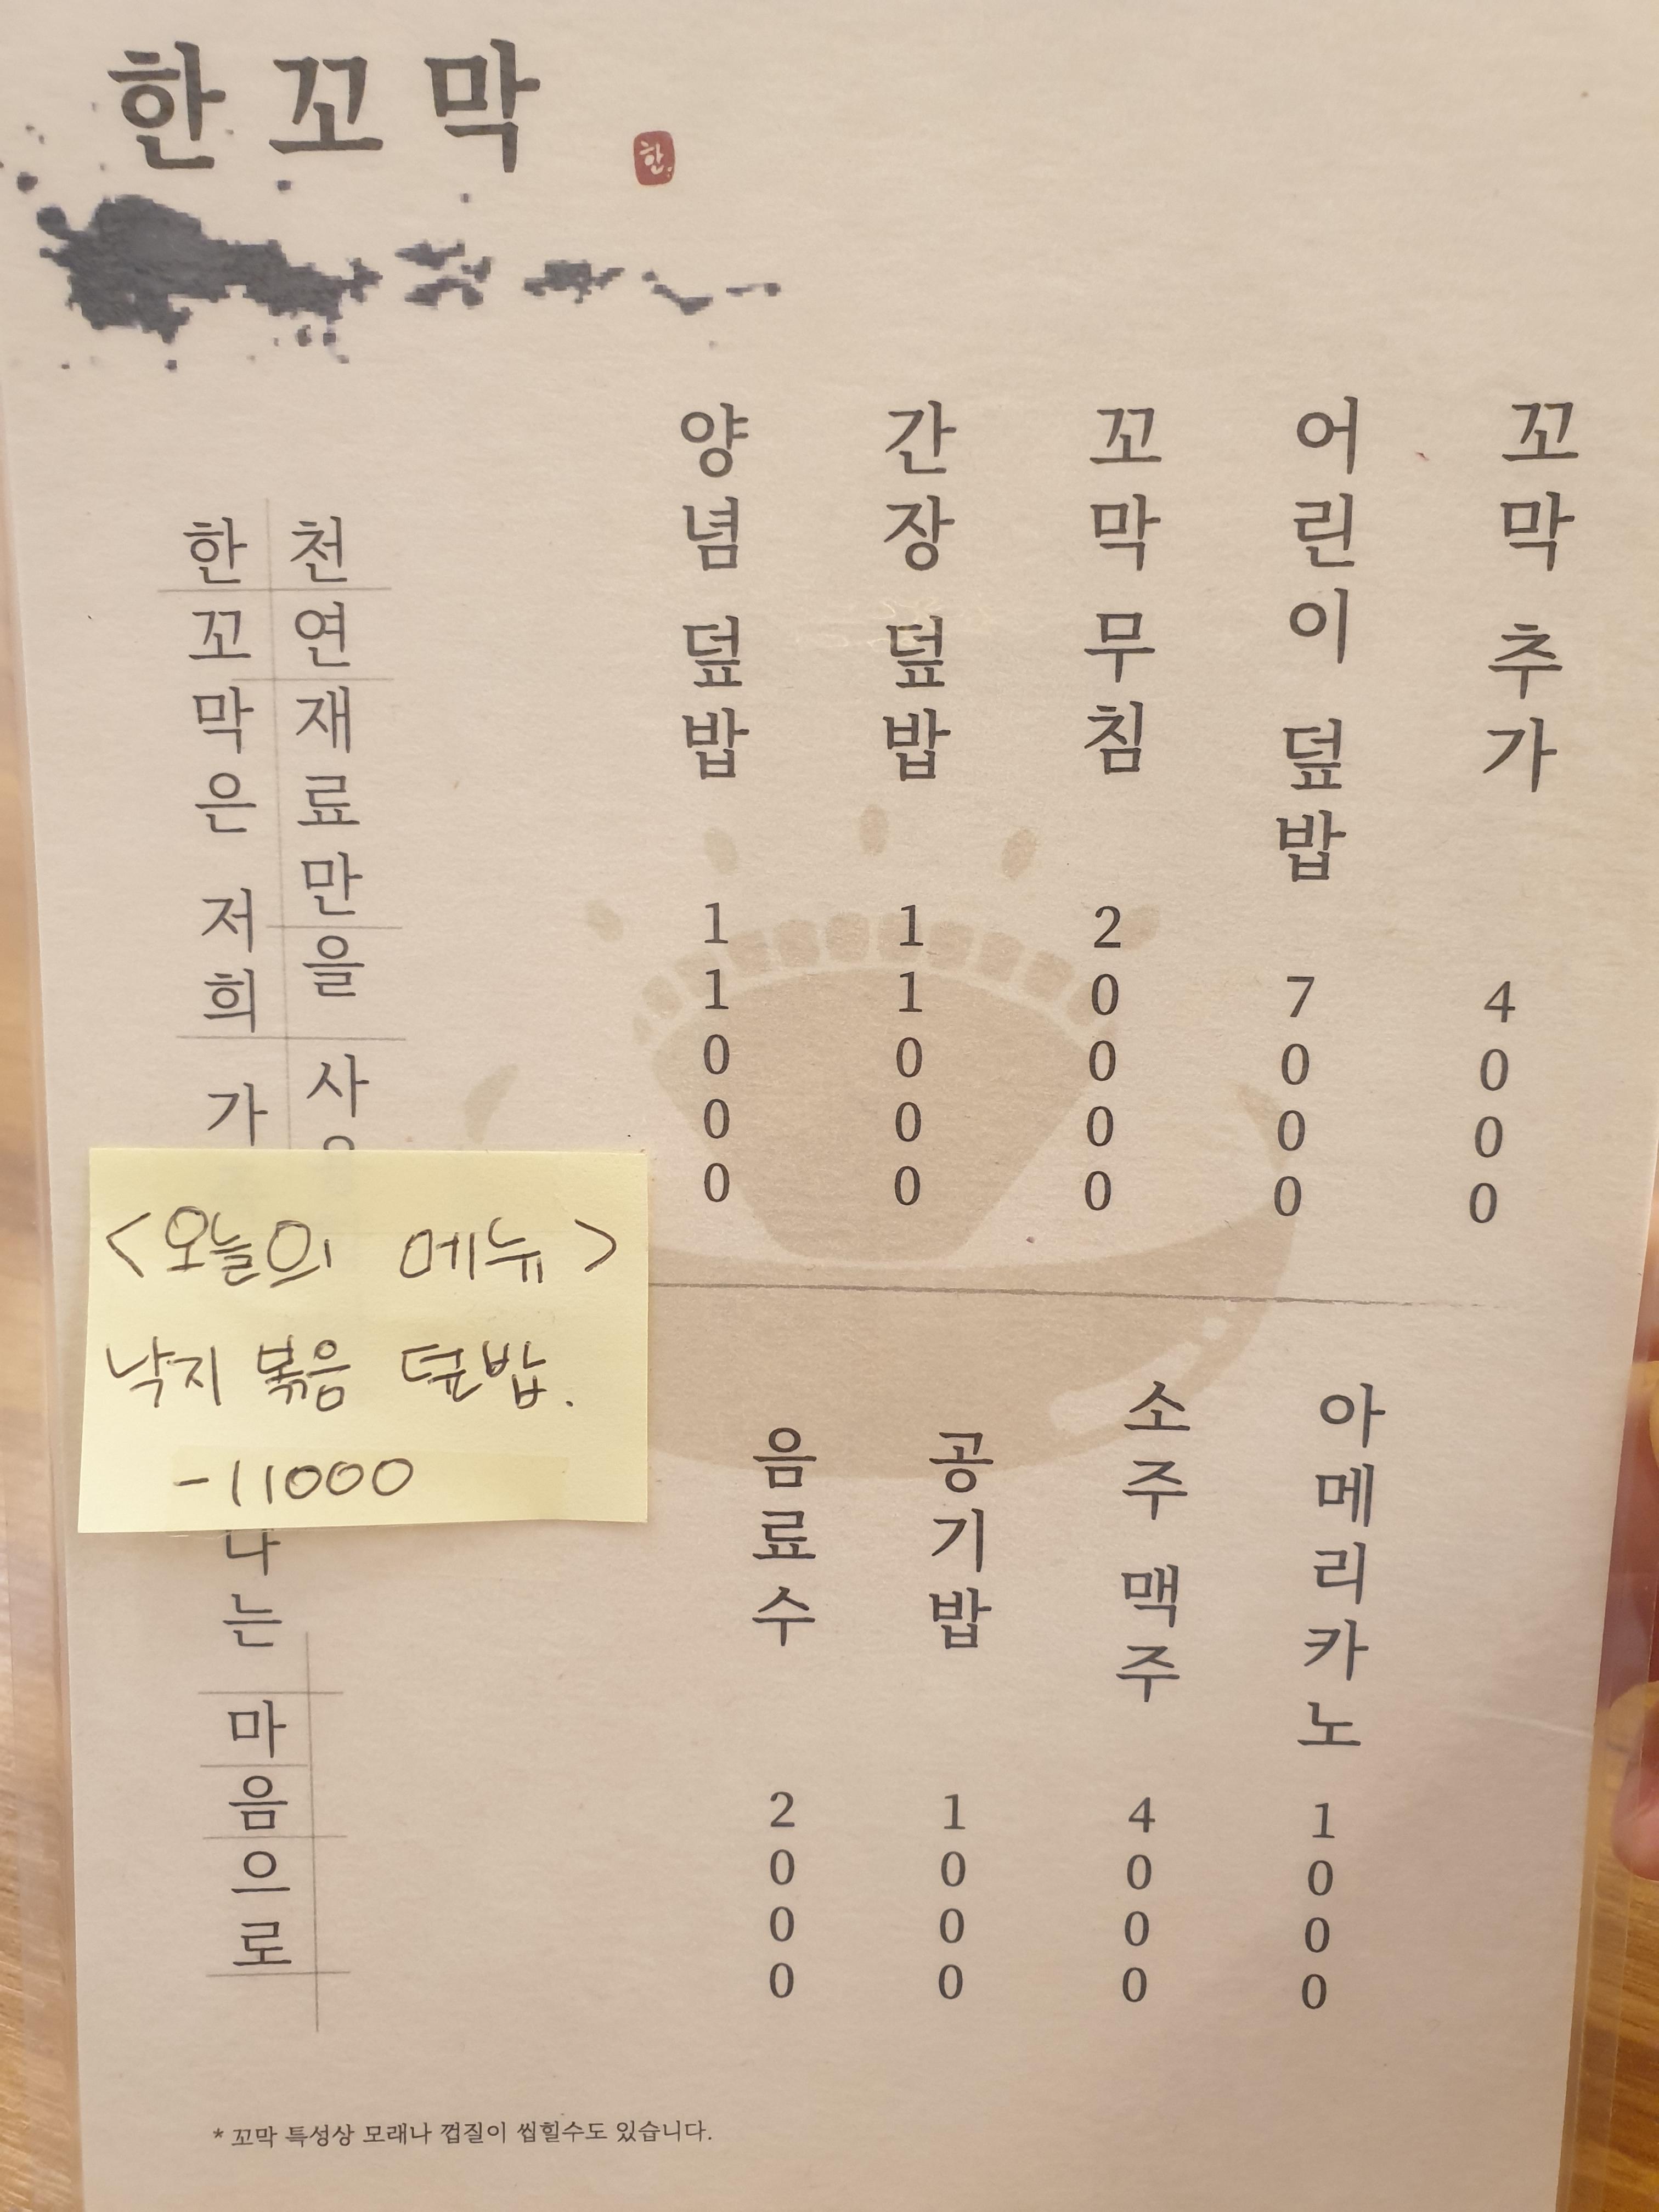 한꼬막
한
양념 덮밥 11000
간장 덮밥 11000
꼬막 무침 20000
어린이 덮밥 7000
꼬막 추가 4000
한꼬막은 저희 가
천연재료만을 사
<오늘의 메뉴>
낙지 볶음 덮밥.
-11000
는 마음으로
음료수 2000
공기밥 1000
소주 맥주 4000
아메리카노 1000
* 꼬막 특성상 모래나 껍질이 씹힐수도 있습니다.